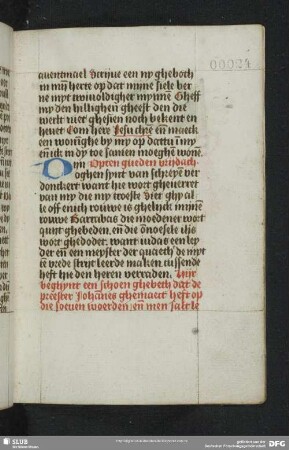 00024
auentmael Scrijue een ny gheboth
in mijn herte op dat mijne siele ber
ne myt twiuoldigher mynnē Gheff
my den hillighen gheest den die
werlt niet ghesien noch bekent en
heuet Com here Jesu christe en maeck
een woninghe by my op dattu in my
en ick in dy toe samen moeghē wonē
Opten gueden vrydach
Myn oghen synt van schreyē ver
donckert want hie wort gheuerret
van my die my troeste Siet ghy al
le off enich rouwe is ghelijck mijnē
rouwe Barrabas die moedener wort
quijt ghegheben. en die onoesele ihs
wort ghedodet. want iudas een ley
der en een meyster der quaetheyt myt
ēē vrede strijt leerde maken cussende
heft hie den heren verraden. Hijr
beghynt een schoen ghebeth dat de
preester Johānes ghemaect heft op
die soeuen woerden: en men sal le
SLUB
DFG